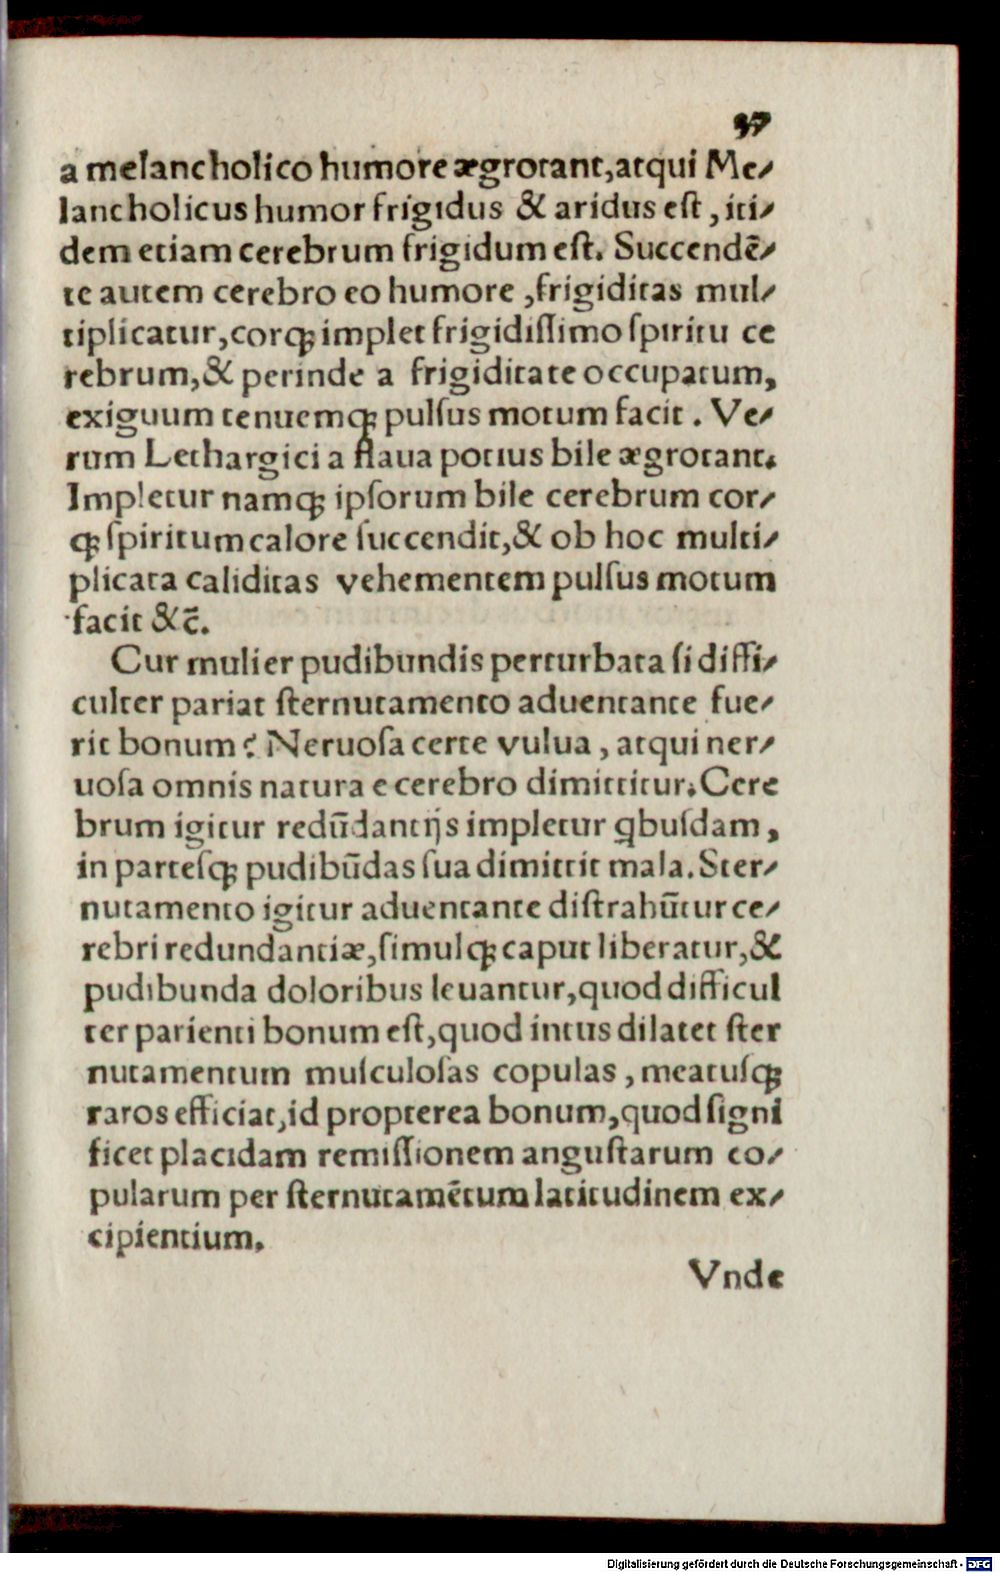 37
a melancholico humore ægrotant, atqui Me⸗
lancholicus humor frigidus & aridus eſt, iti⸗
dem etiam cerebrum frigidum eſt. Succendē⸗
te autem cerebro eo humore, frigiditas mul⸗
tiplicatur, corqꝫ implet frigidiſſimo ſpiritu ce
rebrum, & perinde a frigiditate occupatum,
exiguum tenuemqꝫ pulſus motum facit. Ve⸗
rum Lethargici a flaua potius bile ægrotant.
Impletur namqꝫ ipſorum bile cerebrum cor⸗
qꝫ ſpiritum calore ſuccendit, & ob hoc multi⸗
plicata caliditas vehementem pulſus motum
facit &c̄.
Cur mulier pudibundis perturbata ſi diffi⸗
culter pariat ſternutamento aduentante fue⸗
rit bonum? Neruoſa certe vulua, atqui ner⸗
uoſa omnis natura e cerebro dimittitur. Cere
brum igitur redūdantijs impletur ꝗbuſdam,
in parteſqꝫ pudibūdas ſua dimittit mala. Ster⸗
nutamento igitur aduentante diſtrahūtur ce⸗
rebri redundantiæ, ſimulqꝫ caput liberatur, &
pudibunda doloribus leuantur, quod difficul
ter parienti bonum eſt, quod intus dilatet ſter
nutamentum muſculoſas copulas, meatuſqꝫ
raros efficiat, id propterea bonum, quod ſigni
ficet placidam remiſſionem anguſtarum co⸗
pularum per ſternutamētum latitudinem ex⸗
cipientium.
Vnde
Digitalisierung gefördert durch die Deutsche Forschungsgemeinschaft - DFG